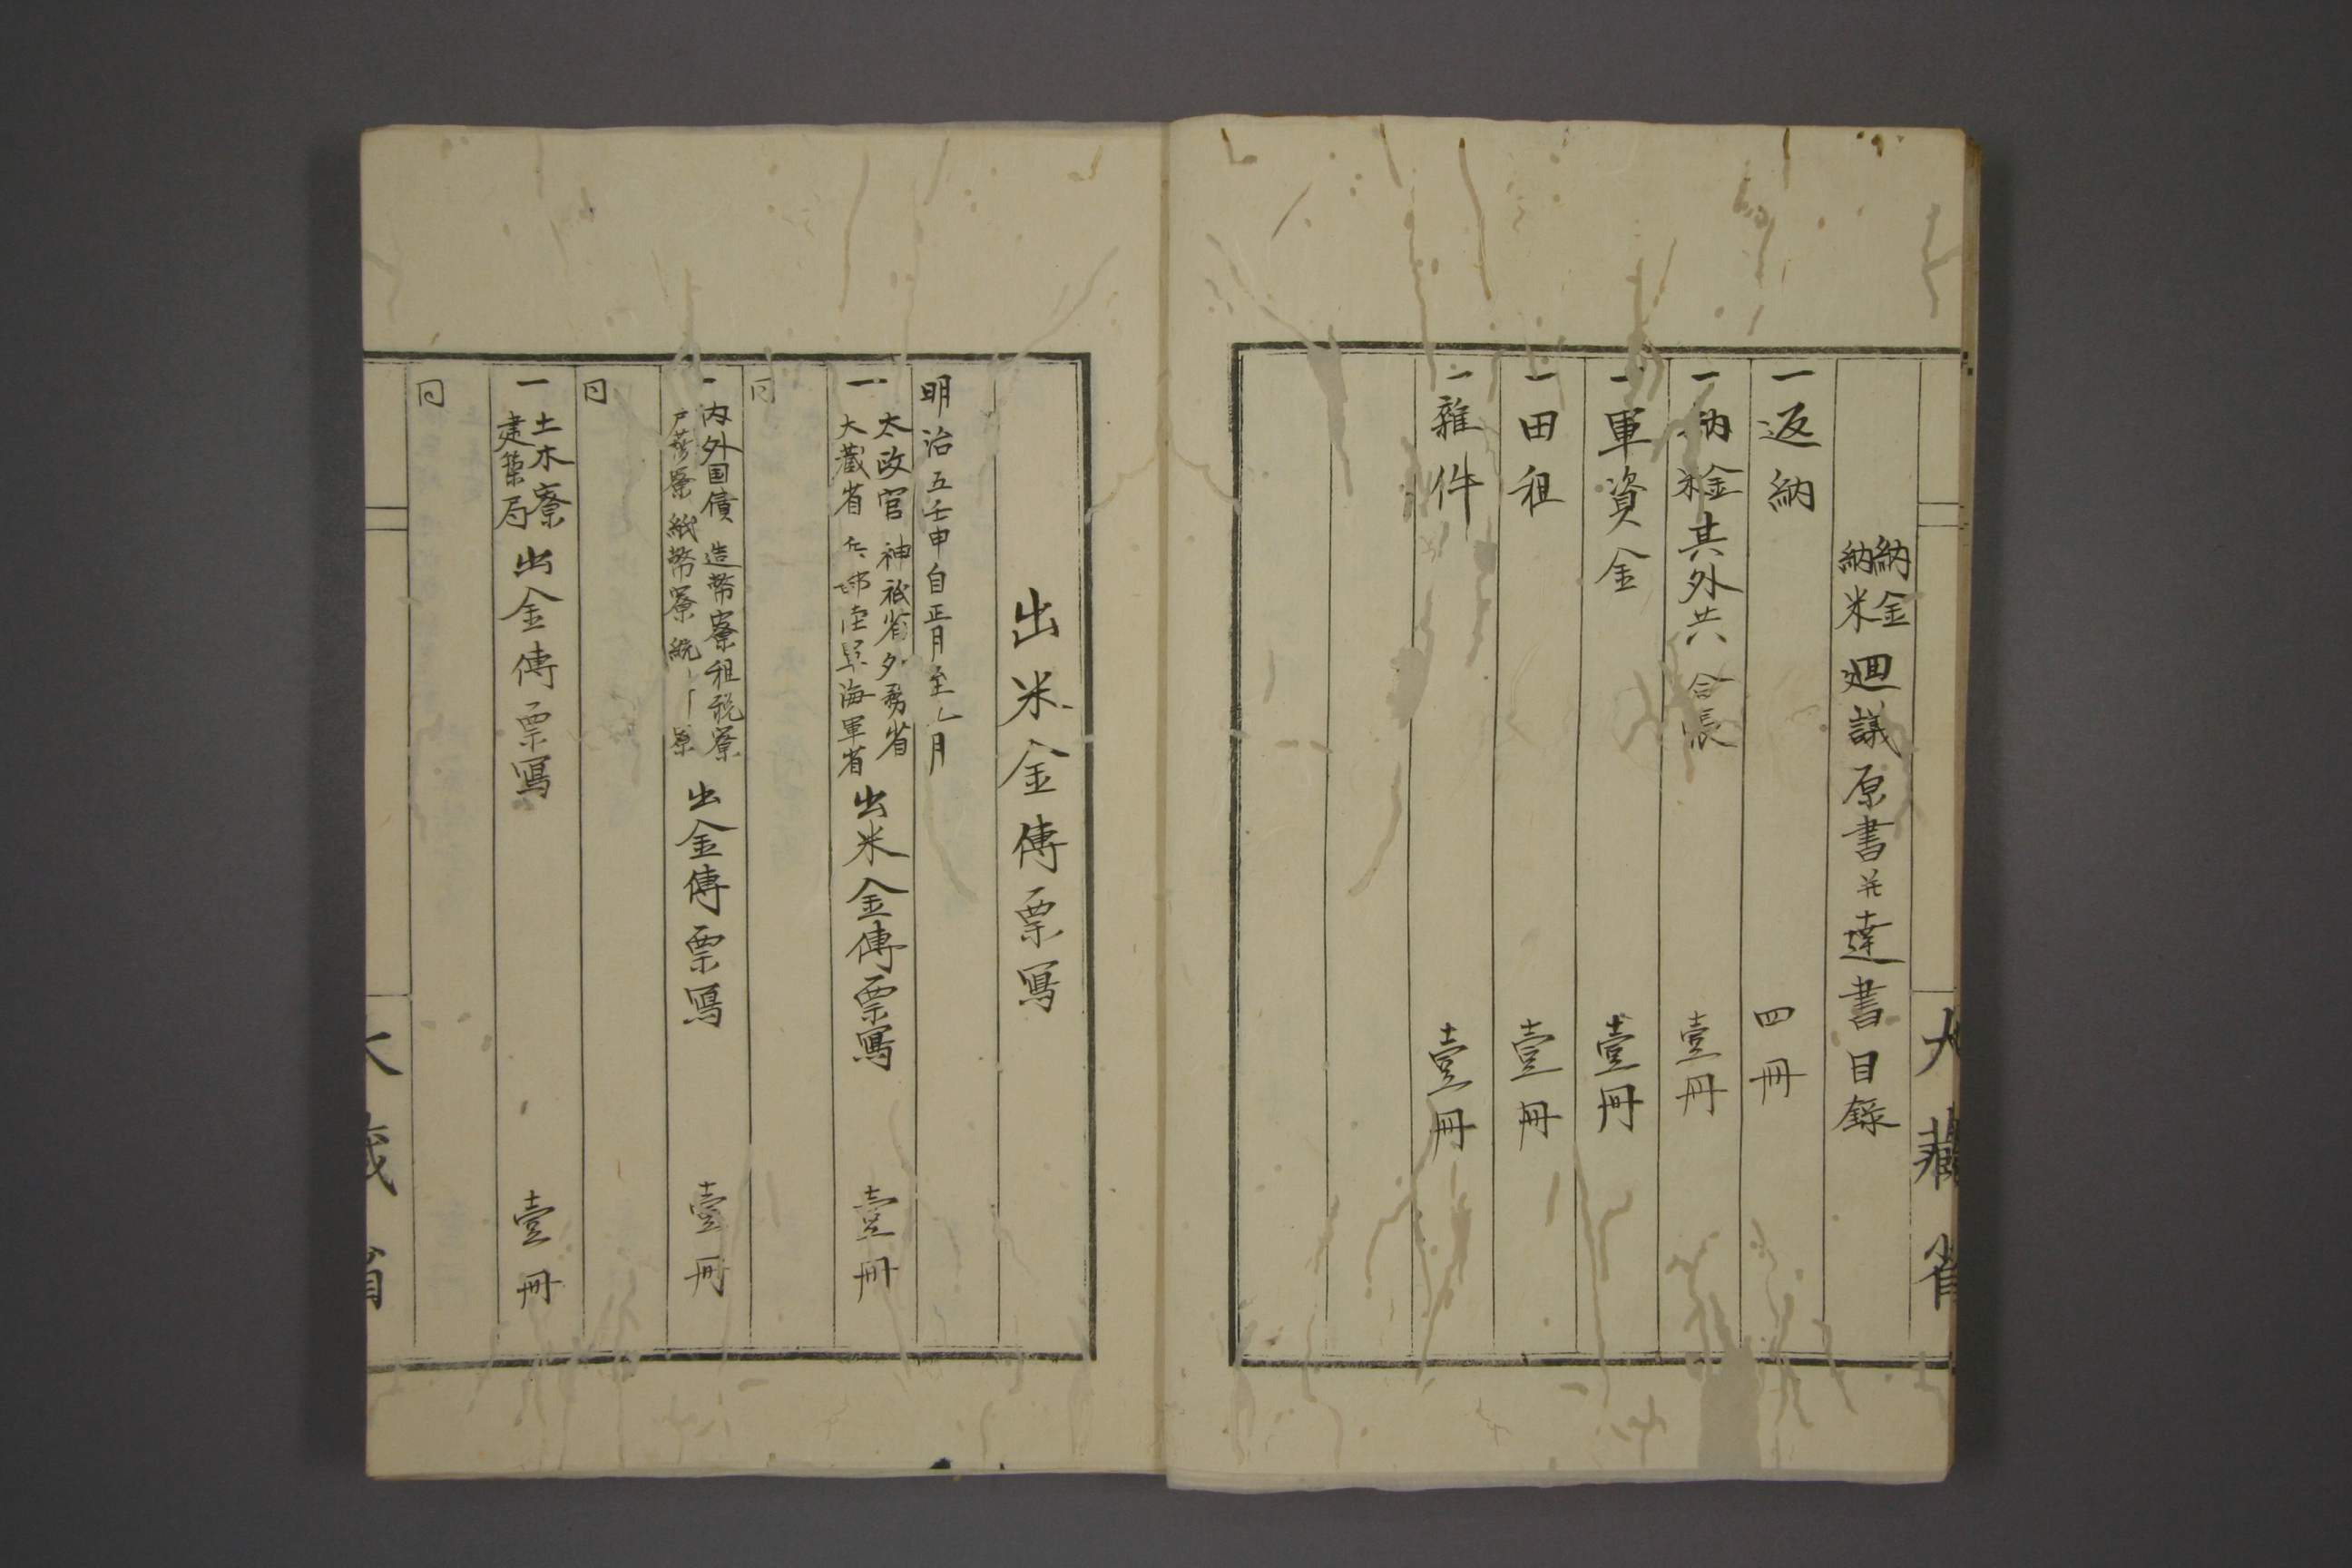 大藏省
納金
納米
廻議原書并達書目錄
一返納 四冊
一納金米其外共合帳 壹冊
一軍資金 壹冊
一田租 壹冊
一雜件 壹冊
出米金傳票寫
明治五壬申自正月至 月
一太政官 神祇省 外務省
大藏省 兵部 陸軍 海軍省
出米金傳票寫 壹冊
同
一内外国債 造幣寮 租税寮
紙幣寮 統 寮
出金傳票寫 壹冊
同
一土木寮
建築局
出金傳票寫 壹冊
同
大藏省